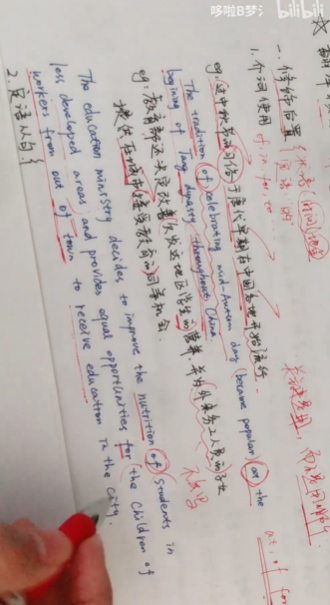 哆啦B梦 bilibili
一、修饰后置
定语
1. 介词使用 of. in. for. to
eg. 过中秋节的习俗于唐代早期在中国各地开始流行.
The tradition of celebrating mid-Autumn day (became popular) at the
begining of Tang dynasty throughouts China.
eg: 教育部还决定改善欠发达地区学生的营养 并为外来务工人员的子女
提供在城市接受教育的同等机会.
The education ministry decides to improve the nutrition of students in
less developed areas and provides equal opportunities for the children of
workers from out of town to receive education in the city.
2. 定语从句
at. of